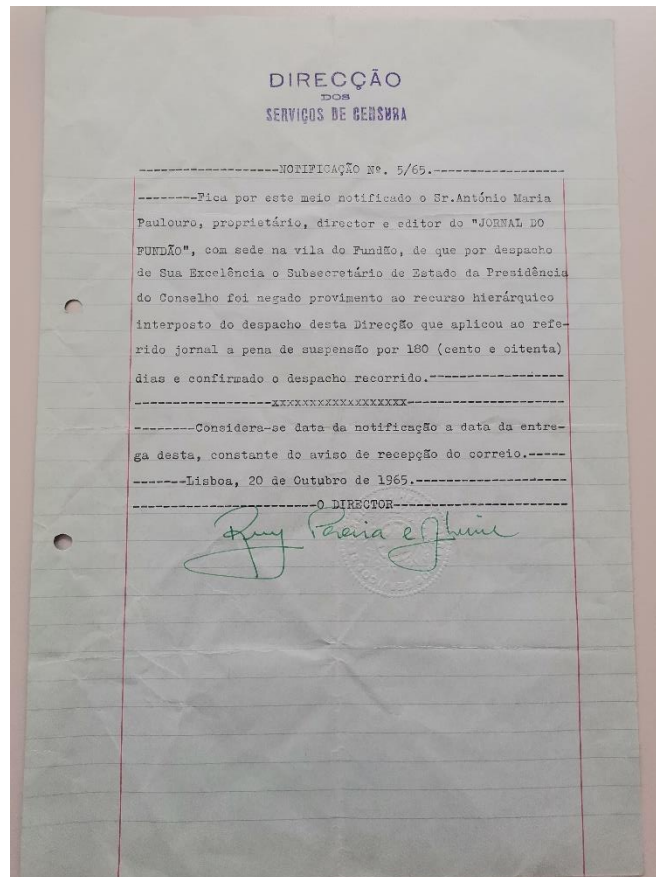 DIRECÇÃO
DOS
SERVIÇOS DE CENSURA
--------------------NOTIFICAÇÃO Nº. 5/65.-------------------
--------Fica por este meio notificado o Sr.António Maria
Paulouro, proprietário, director e editor do "JORNAL DO
FUNDÃO", com sede na vila do Fundão, de que por despacho
de Sua Excelência o Subsecretário de Estado da Presidência
do Conselho foi negado provimento ao recurso hierárquico
interposto do despacho desta Direcção que aplicou ao refe-
rido jornal a pena de suspensão por 180 (cento e oitenta)
dias e confirmado o despacho recorrido.--------------------
--------------------xxxxxxxxxxxxxxxxxxx--------------------
--------Considera-se data da notificação a data da entre-
ga desta, constante do aviso de recepção do correio.-----
-------Lisboa, 20 de Outubro de 1965.----------------------
--------------------------O DIRECTOR-------------------------
Pereira e